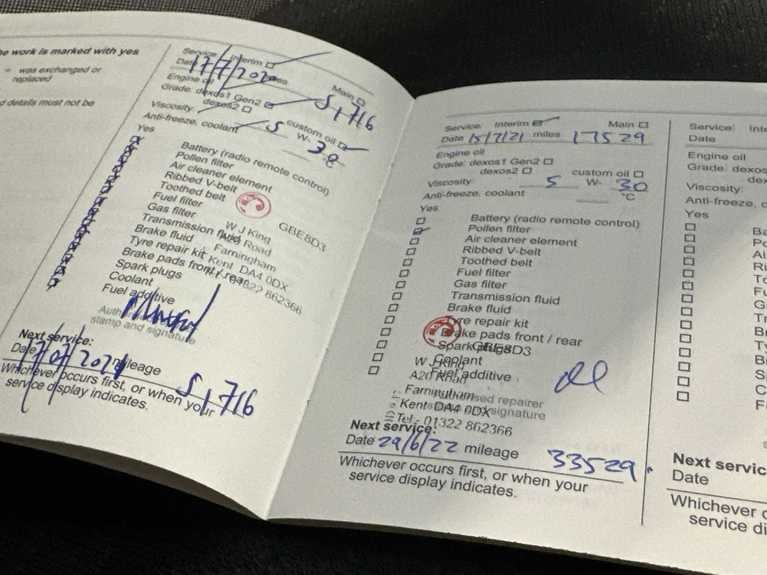 he work is marked with yes
= was exchanged or
replaced
d details must not be
Service: Interim
Main
Date 17/7/20
51,716
Engine oil
Grade: dexos1 Gen2
dexos2
custom oil
Viscosity: 5 W- 30
Anti-freeze, coolant
Yes
Battery (radio remote control)
Pollen filter
Air cleaner element
Ribbed V-belt
Toothed belt
Fuel filter
Gas filter
Transmission fluid
Brake fluid
Tyre repair kit
Brake pads front / rear
Spark plugs
Coolant
Fuel additive
GBE8D3
W J King
Road
Farningham
Kent DA4 0DX
01322 862366
stamp and signature
Next service:
Date mileage
51,716
Whichever occurs first, or when your
service display indicates.
Service: Interim Main
Date 15/7/21 miles 17529
Engine oil
Grade: dexos1 Gen2
dexos2 custom oil
Viscosity: 5 W- 30
Anti-freeze, coolant °C
Yes
Battery (radio remote control)
Pollen filter
Air cleaner element
Ribbed V-belt
Toothed belt
Fuel filter
Gas filter
Transmission fluid
Brake fluid
Tyre repair kit
Brake pads front / rear
Spark plugs
Coolant
Fuel additive
GBE8D3
W J King
A20 Road
Farningham
Kent DA4 0DX
Tel:- 01322 862366
repairer
signature
Next service:
Date 29/6/22 mileage 33529.
Whichever occurs first, or when your
service display indicates.
Service: Inte
Date
Engine oil
Grade: dexo
dex
Viscosity:
Anti-freeze, c
Yes
Ba
Po
Ai
Ri
To
Fu
G
Tr
B
Ty
B
S
C
F
Next servic
Date
Whichever o
service di